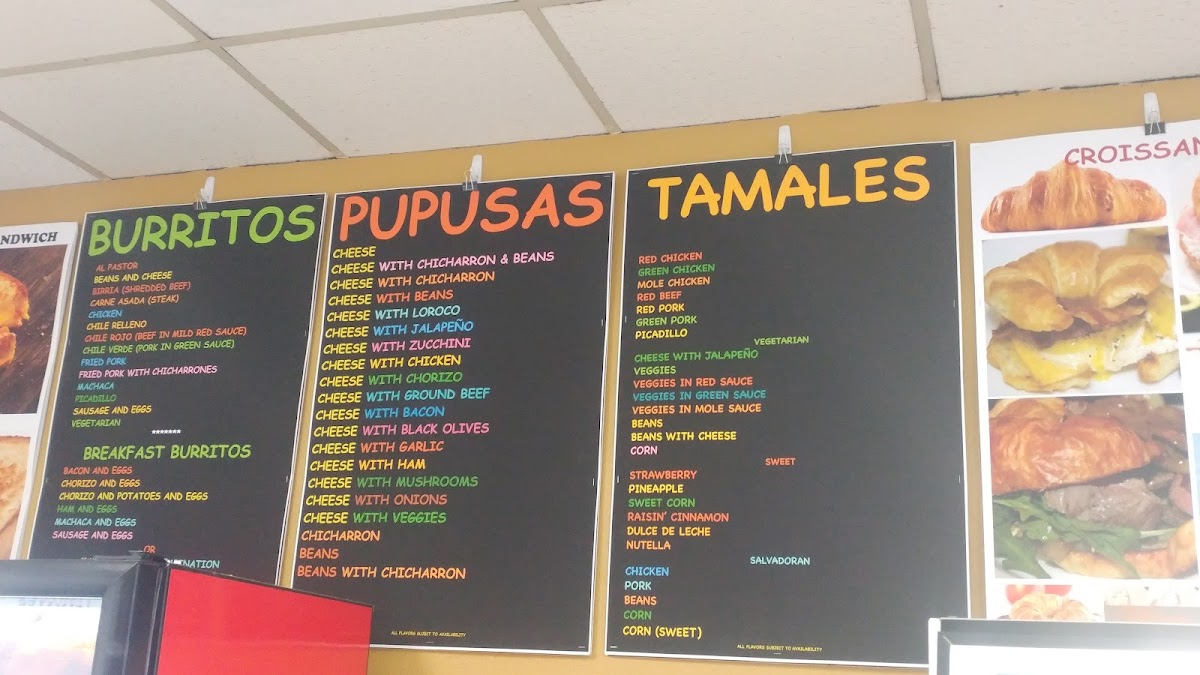 NDWICH
BURRITOS
AL PASTOR
BEANS AND CHEESE
BIRRIA (SHREDDED BEEF)
CARNE ASADA (STEAK)
CHICKEN
CHILE RELLENO
CHILE ROJO (BEEF IN MILD RED SAUCE)
CHILE VERDE (PORK IN GREEN SAUCE)
FRIED PORK
FRIED PORK WITH CHICHARRONES
MACHACA
PICADILLO
SAUSAGE AND EGGS
VEGETARIAN
*******
BREAKFAST BURRITOS
BACON AND EGGS
CHORIZO AND EGGS
CHORIZO AND POTATOES AND EGGS
HAM AND EGGS
MACHACA AND EGGS
SAUSAGE AND EGGS
OR
NATION
PUPUSAS
CHEESE
CHEESE WITH CHICHARRON & BEANS
CHEESE WITH CHICHARRON
CHEESE WITH BEANS
CHEESE WITH LOROCO
CHEESE WITH JALAPEÑO
CHEESE WITH ZUCCHINI
CHEESE WITH CHICKEN
CHEESE WITH CHORIZO
CHEESE WITH GROUND BEEF
CHEESE WITH BACON
CHEESE WITH BLACK OLIVES
CHEESE WITH GARLIC
CHEESE WITH HAM
CHEESE WITH MUSHROOMS
CHEESE WITH ONIONS
CHEESE WITH VEGGIES
CHICHARRON
BEANS
BEANS WITH CHICHARRON
ALL FLAVORS SUBJET TO AVAILABILITY
TAMALES
RED CHICKEN
GREEN CHICKEN
MOLE CHICKEN
RED BEEF
RED PORK
GREEN PORK
PICADILLO
VEGETARIAN
CHEESE WITH JALAPEÑO
VEGGIES
VEGGIES IN RED SAUCE
VEGGIES IN GREEN SAUCE
VEGGIES IN MOLE SAUCE
BEANS
BEANS WITH CHEESE
CORN
SWEET
STRAWBERRY
PINEAPPLE
SWEET CORN
RAISIN' CINNAMON
DULCE DE LECHE
NUTELLA
SALVADORAN
CHICKEN
PORK
BEANS
CORN
CORN (SWEET)
ALL FLAVORS SUBJECT TO AVAILABILITY
CROISSAN